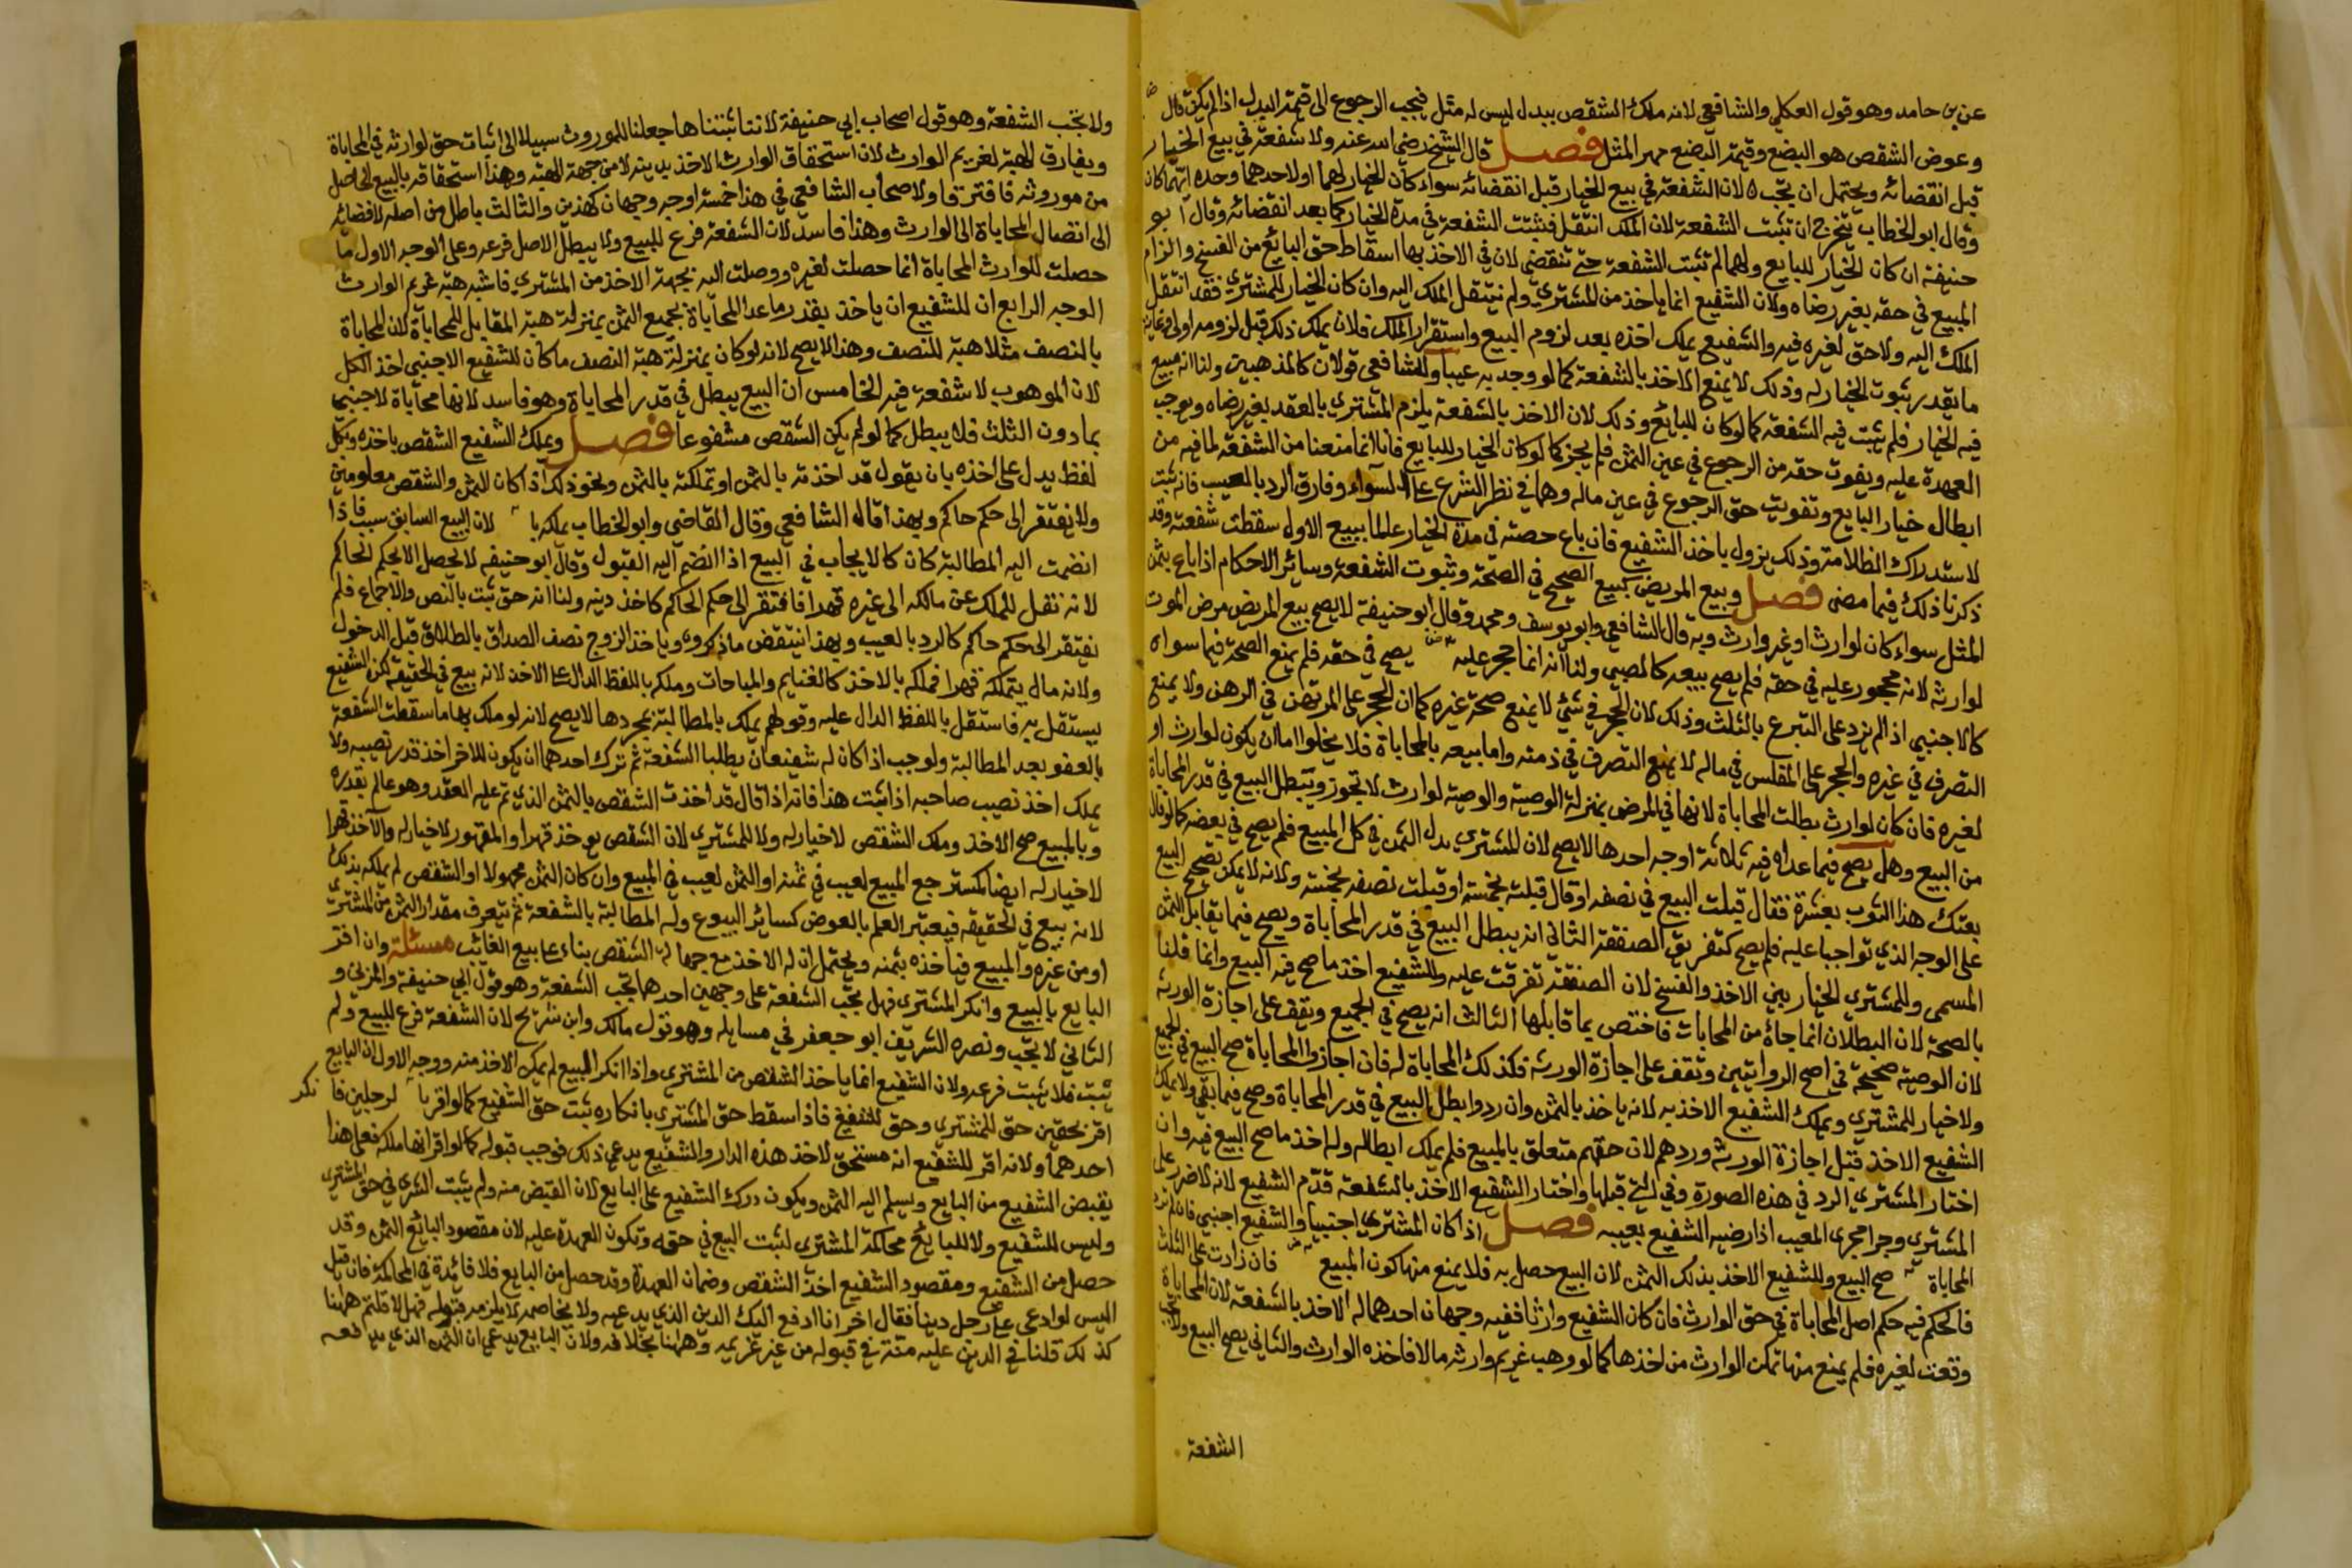 عن بن حامد وهو قول العكلي والشافعي لانه ملك الشقص ببدل ليس له مثل فيجب الرجوع الى قيمة البدل اذا لم يكن قال
وعوض الشقص هو البضع وقيمة البضع مهر المثل فصل قال الشيخ رضي الله عنه ولا شفعة في بيع الخيار
قبل انقضائه ويحتمل ان تجب لان الشفعة في بيع الخيار قبل انقضائه سواء كان الخيار لهما او لاحدهما وحده ايهما كان
وقال ابو الخطاب يتخرج ان تثبت الشفعة لان الملك انتقل فثبتت الشفعة في مدة الخيار كما بعد انقضائه وقال ابو
حنيفة ان كان الخيار للبايع ولهما لم تثبت الشفعة حتى تنقضي لان في الاخذ بها اسقاط حق البائع من الفسخ والزام
المبيع في حقه بغير رضاه ولان الشفيع انما ياخذ من المشتري ولم ينتقل الملك اليه وان كان الخيار للمشتري فقد انتقل
الملك اليه ولا حق لغيره فيه والشفيع يملك اخذه بعد لزوم البيع واستقرار الملك فلان يملك ذلك قبل لزومه اولى وغاية
ما يقدر ثبوت الخيار له وذلك لا يمنع الاخذ بالشفعة كما لو وجد به عيبا وللشافعي قولان كالمذهبين ولنا انه مبيع
فيه الخيار فلم يثبت فيه الشفعة كما لو كان للبائع وذلك لان الاخذ بالشفعة يلزم المشتري بالعقد بغير رضاه ويوجب
العهدة عليه ويفوت حقه من الرجوع في عين الثمن فلم يجز كما لو كان الخيار للبايع فاننا انما منعنا من الشفعة لما فيه من
ابطال خيار البايع وتفويت حق الرجوع في عين ماله وهما في نظر الشرع على السواء وفارق الرد بالعيب فانه ثبت
لاستدراك الظلامة وذلك يزول باخذ الشفيع فان باع حصته في مدة الخيار عالما ببيع الاول سقطت شفعته وقد
ذكرنا ذلك فيما مضى فصل وبيع المريض كبيع الصحيح في الصحة وثبوت الشفعة وسائر الاحكام اذا باع بثمن
المثل سواء كان لوارث او غير وارث وبه قال الشافعي وابو يوسف ومحمد وقال ابو حنيفة لا يصح بيع المريض مرض الموت
لوارثه لانه محجور عليه في حقه فلم يصح بيعه كالصبي ولنا انه انما حجر عليه يصح في حقه فلم يمنع الصحة فيما سواه
كالاجنبي اذا لم يزد على التبرع بالثلث وذلك لان الحجر في شئ لا يمنع صحة غيره كما ان الحجر على المرتهن في الرهن ولا يمنع
التصرف في غيره والحجر على المفلس في ماله لا يمنع التصرف في ذمته واما بيعه بالمحاباة فلا يخلوا اما ان يكون لوارث او
لغيره فان كان لوارث بطلت المحاباة لانها في المرض بمنزلة الوصية والوصية لوارث لا تجوز ويبطل البيع في قدر المحاباة
من البيع وهل يصح فيما عداه فيه ثلاثة اوجه احدها لا يصح لان المشتري بدل الثمن في كل المبيع فلم يصح في بعضه كما لو قال
بعتك هذا الثوب بعشرة فقال قبلت البيع في نصفه او قال قبلته بخمسة او قبلت نصفه بخمسة ولانه لا يمكن تصحيح البيع
على الوجه الذي تواجبا عليه فلم يصح كتفريق الصفقة الثاني انه يبطل البيع في قدر المحاباة ويصح فيما يقابل الثمن
المسمى وللمشتري الخيار بين الاخذ والفسخ لان الصفقة تفرقت عليه وللشفيع اخذ ما صح فيه البيع وانما قلنا
بالصحة لان البطلان انما جاء من المحابات فاختص بما قابلها الثالث انه يصح في الجميع ويقف على اجازة الورثة
لان الوصية صحيحة في اصح الروايتين وتقف على اجازة الورثة فكذلك المحاباة له فان اجازوا المحاباة صح البيع في الجميع
ولا خيار للمشتري ويملك الشفيع الاخذ به لانه ياخذ بالثمن وان ردوا بطل البيع في قدر المحاباة وصح فيما بقي ولا يملك
الشفيع الاخذ قبل اجازة الورثة وردهم لان حقهم متعلق بالمبيع فلم يملك ابطاله وله اخذ ما صح البيع فيه وان
اختار المشتري الرد في هذه الصورة وفي التي قبلها واختار الشفيع الاخذ بالشفعة قدم الشفيع لانه لا ضرر على
المشتري وجرا مجرى المعيب اذا رضيه الشفيع بعيبه فصل اذا كان المشتري اجنبيا والشفيع اجنبي فان لم تزد
المحاباة صح البيع وللشفيع الاخذ بذلك الثمن لان البيع حصل به فلا يمنع منها كون المبيع فان زادت على الثلث
فالحكم فيه حكم اصل المحاباة في حق الوارث فان كان الشفيع وارثا ففيه وجهان احدهما له الاخذ بالشفعة لان المحاباة
وقعت لغيره فلم يمنع منها تمكن الوارث من اخذها كما لو وهب غريم وارثه مالا فاخذه الوارث والثاني يصح البيع ولا تجب
الشفعة
ولا تجب الشفعة وهو قول اصحاب ابي حنيفة لاننا اثبتناها جعلنا للموروث سبيلا الى اثبات حق لوارثه في المحاباة
ويفارق الهبة لغريم الوارث لان استحقاق الوارث الاخذ بدينه لا من جهة الهبة وهذا استحقاقه بالبيع الحاصل
من موروثه فافترقا ولاصحاب الشافعي في هذا خمسة اوجه وجهان كهذين والثالث باطل من اصله لافضائه
الى اتصال المحاباة الى الوارث وهذا فاسد لان الشفعة فرع للبيع ولا يبطل الاصل فرعه وعلى الوجه الاول ما
حصلت للوارث المحاباة انما حصلت لغيره ووصلت اليه بجهة الاخذ من المشتري فاشبه هبة غريم الوارث
الوجه الرابع ان للشفيع ان ياخذ بقدر ما عدا المحاباة بجميع الثمن بمنزلة هبة المقابل للمحاباة لان المحاباة
بالنصف مثلا هبة للنصف وهذا لا يصح لانه لو كان بمنزلة هبة النصف ما كان للشفيع الاجنبي اخذ الكل
لان الموهوب لا شفعة فيه الخامس ان البيع يبطل في قدر المحاباة وهو فاسد لانها محاباة لاجنبي
بما دون الثلث فلا يبطل كما لو لم يكن الشقص مشفوعا فصل ويملك الشفيع الشقص باخذه وبكل
لفظ يدل على اخذه بان يقول قد اخذته بالثمن او تملكته بالثمن ونحو ذلك اذا كان الثمن والشقص معلومين
ولا يفتقر الى حكم حاكم وبهذا قال الشافعي وقال القاضي وابو الخطاب يملكه با لان البيع السابق سبب فاذا
انضمت اليه المطالبة كان كالايجاب في البيع اذا انضم اليه القبول وقال ابو حنيفه لا يحصل الا بحكم الحاكم
لانه نقل للملك عن مالكه الى غيره قهرا فافتقر الى حكم الحاكم كاخذ دينه ولنا انه حق ثبت بالنص والاجماع فلم
يفتقر الى حكم حاكم كالرد بالعيب وبهذا ينتقض ما ذكروه وياخذ الزوج نصف الصداق بالطلاق قبل الدخول
ولانه مال يتملكه قهرا فملكه بالاخذ كالغنايم والمباحات وملكه باللفظ الدال على الاخذ لانه بيع في الحقيقة لكن الشفيع
يستقل به فاستقل باللفظ الدال عليه وقولهم يملك بالمطالبة بمجردها لا يصح لانه لو ملك بها ما سقطت الشفعة
بالعفو بعد المطالبة ولوجب اذا كان له شفيعان يطلبا الشفعة ثم ترك احدهما ان يكون للاخر اخذ قدر نصيبه ولا
يملك اخذ نصيب صاحبه اذا ثبت هذا فانه اذا قال قد اخذت الشقص بالثمن الذي تم عليه العقد وهو عالم بقدره
وبالمبيع صح الاخذ وملك الشقص لا خيار له ولا للمشتري لان الشقص يوخذ قهرا والمقهور لا خيار له والآخذ قهرا
لا خيار له ايضا كمسترجع المبيع لعيب في ثمنه او الثمن لعيب في المبيع وان كان الثمن مجهولا او الشقص لم يملكه بذلك
لانه بيع في الحقيقه فيعتبر العلم بالعوض كسائر البيوع وله المطالبة بالشفعة ثم يتعرف مقدار الثمن من المشتري
او من غيره والمبيع فياخذه بثمنه ويحتمل ان له الاخذ مع جهالة الشقص بناء على بيع الغائب مسئلة وان اقر
البايع بالبيع وانكر المشتري فهل تجب الشفعة على وجهين احدهما تجب الشفعة وهو قول ابي حنيفة والمزني و
الثاني لا تجب ونصره الشريف ابو جعفر في مسايله وهو قول مالك وابن شريح لان الشفعة فرع للبيع ولم
يثبت فلا يثبت فرعه ولان الشفيع انما ياخذ الشقص من المشتري واذا انكر البيع لم يمكن الاخذ منه ووجه الاول ان البايع
اقر بحقين حق للمشتري وحق للشفيع فاذا سقط حق المشتري بانكاره ثبت حق الشفيع كما لو اقر با لرجلين فا نكر
احدهما ولانه اقر للشفيع انه مستحق لاخذ هذه الدار والشفيع يدعي ذلك فوجب قبوله كما لو اقر انها ملكه فعلى هذا
يقبض الشفيع من البايع ويسلم اليه الثمن ويكون درك الشفيع على البايع لان القبض منه ولم يثبت الشرى في حق المشتري
وليس للشفيع ولا للبايع محاكمة المشتري لثبت البيع في حقه وتكون العهدة عليه لان مقصود البائع الثمن وقد
حصل من الشفيع ومقصود الشفيع اخذ الشقص وضمان العهدة وقد حصل من البايع فلا فائدة في المحاكمة فان قيل
اليس لو ادعى على رجل دينا فقال اخر انا ادفع اليك الدين الذي يدعيه ولا يخاصمه لا يلزمه قبوله فهلا قلتم ههنا
كذلك قلنا في الدين عليه منة في قبوله من غير غريمه وههنا بخلافه ولان البايع يدعي ان الثمن الذي يدفعه